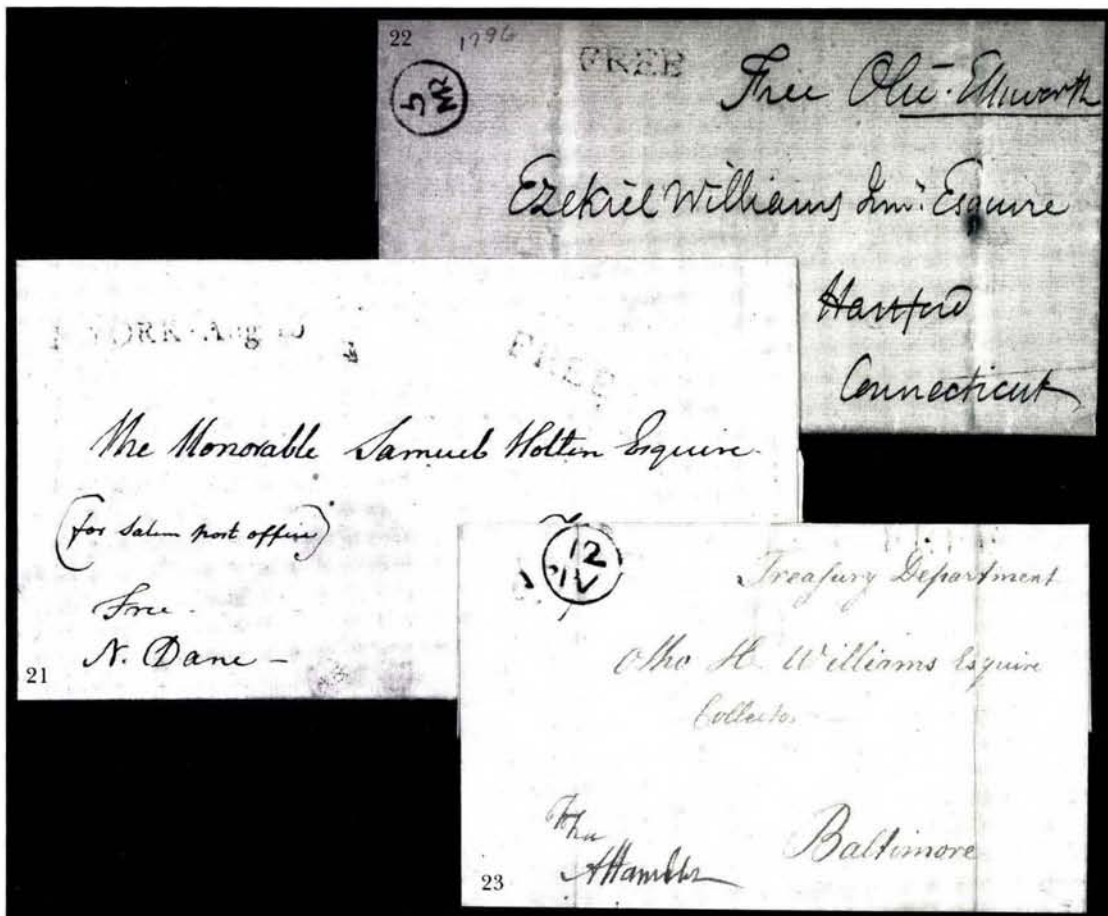 22 1796
5
MR
FREE
Free Olir. Ellsworth
Ezekiel Williams Junr. Esquire
Hartford
Connecticut
YORK Aug
FREE
The Honorable Samuel Holten Esquire
(for Salem post office)
Free
N. Dane
21
12
IV
Treasury Department
Otho H Williams Esquire
Collector
Free
AHamilton
Baltimore
23